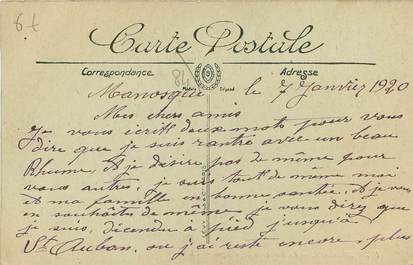 84
Carte Postale
Correspondance
Adresse
84
Modèle Déposé
Manosque le 7 Janvier 1920
Mes chers amis
Je vous écrit deux mots pour vous
dire que je suis rantré avec un beau
Rhume, Et je désire pas de même pour
vous autres, je suis tout de même moi
et ma famille en bonne santé, Et je vous
en souhaites de même je vous dirез que
je suis décendu à pied jusqu'à
St Auban, ou j'ai resté encore plus